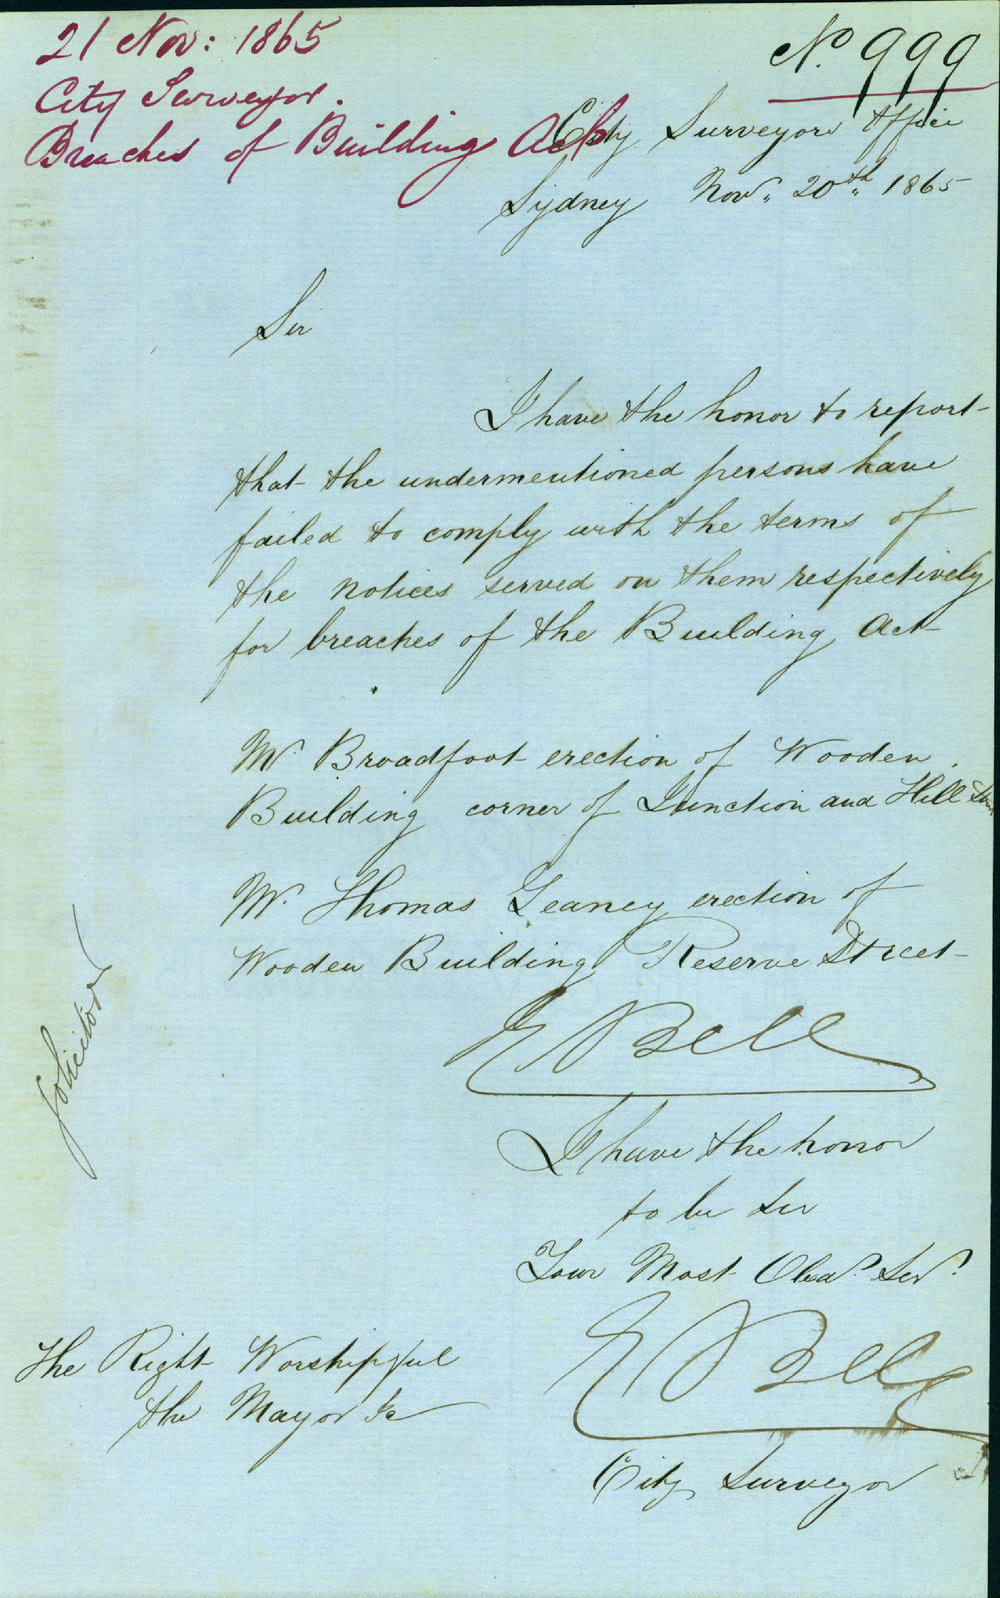 21 Nov: 1865
City Surveyor.
Breaches of Building Act
No. 999
City Surveyors Office
Sydney Nov. 20th 1865
Sir
I have the honor to report
that the undermentioned persons have
failed to comply with the terms of
the notices served on them respectively
for breaches of the Building Act
Mr. Broadfoot erection of Wooden
Building corner of Junction and Hill
Mr. Thomas Geaney erection of
Wooden Building Reserve Street
E Bell
I have the honor
to be Sir
Your Most Obed. Serv.
E Bell
City Surveyor
The Right Worshipful
the Mayor &c
Solicitor